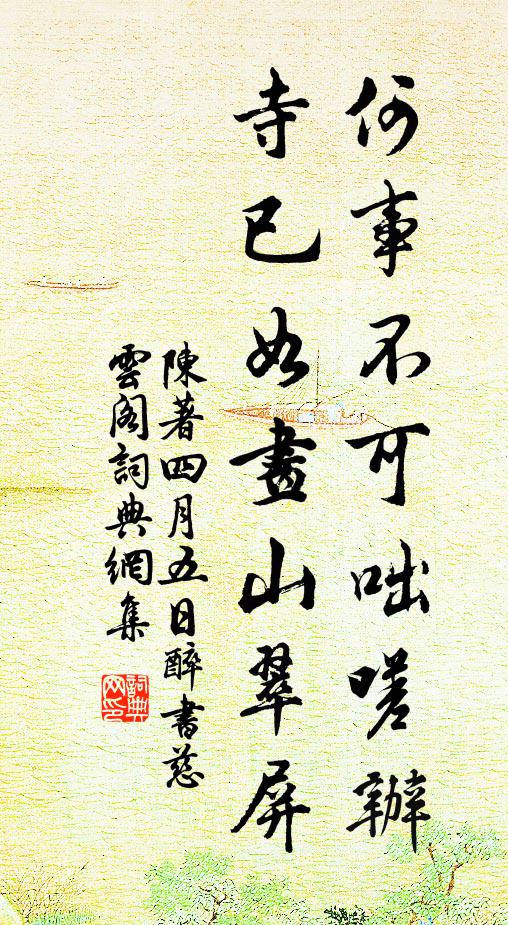 何事不可咄嗟辦
寺已如畫山翠屏
陳著四月五日醉書慈
雲閣詞典網集
詞典
网印